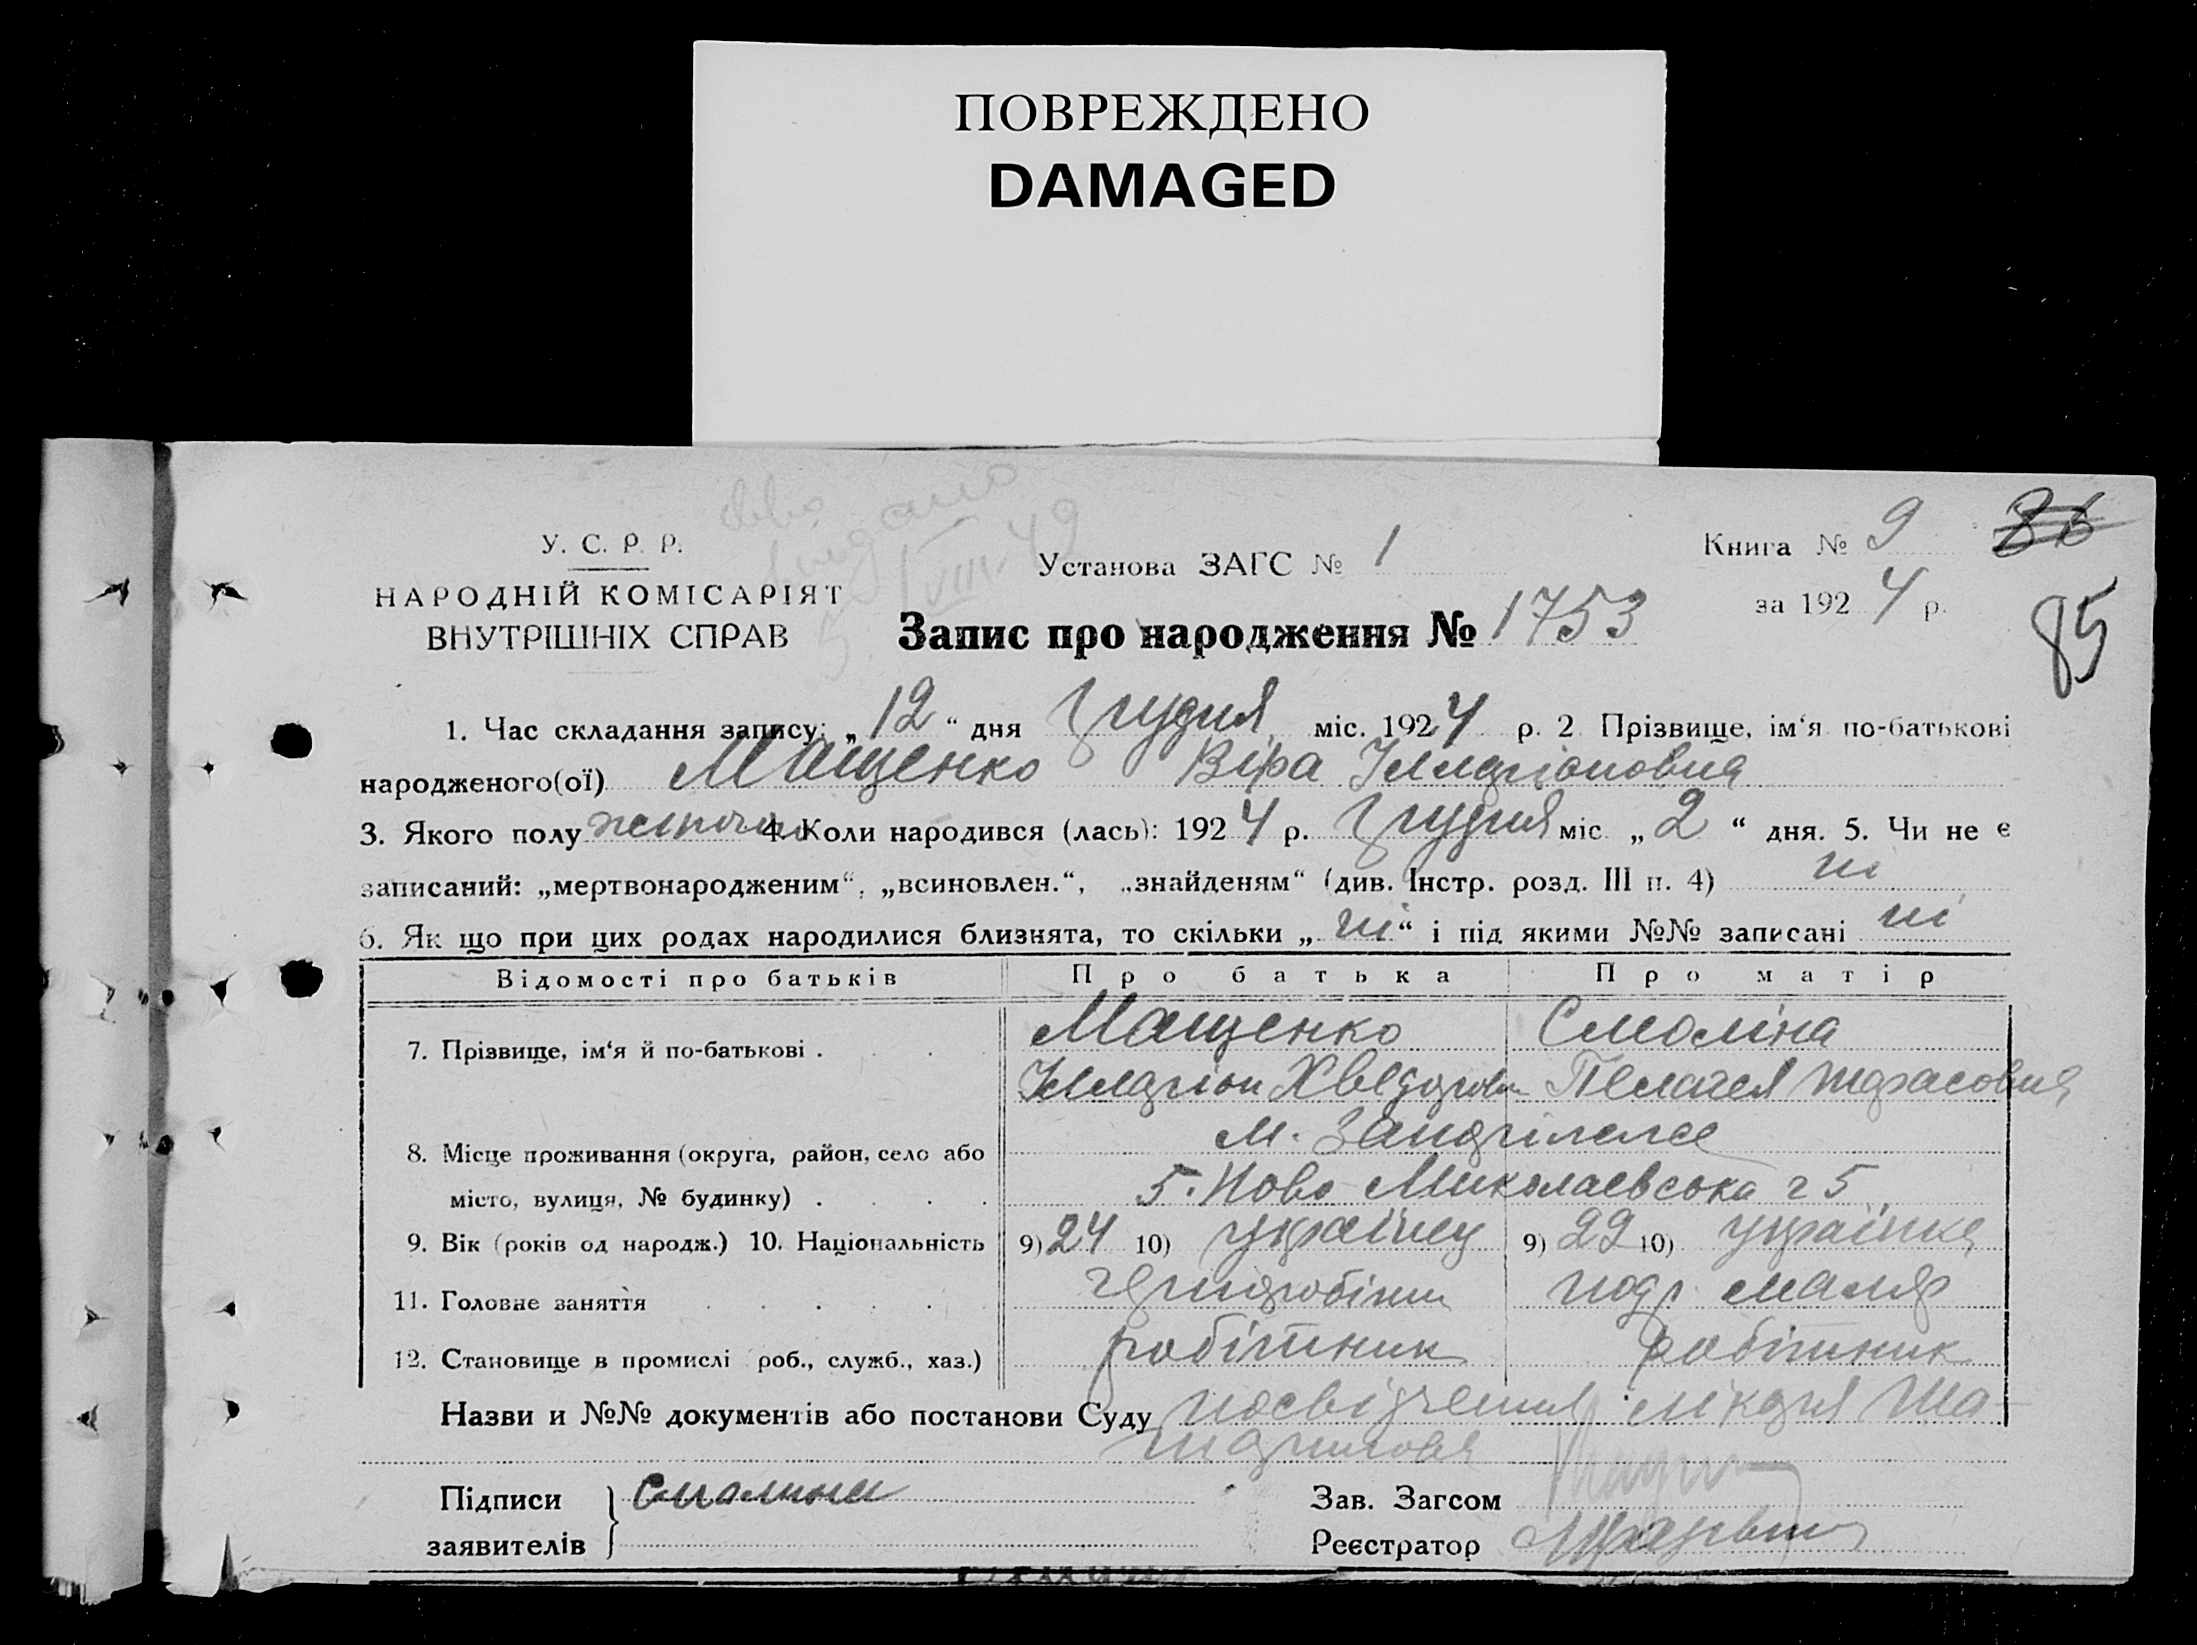 ПОВРЕЖДЕНО
DAMAGED
У. С. Р. Р.
НАРОДНІЙ КОМІСАРІЯТ
ВНУТРІШНІХ СПРАВ
VIII 49
Установа ЗАГС № 1
Книга № 9 86
за 1924 р.
85
Запис про народження № 1753
1. Час складання запису: „12“ дня грудня міс. 1924 р. 2 Прізвище, ім‘я по-батькові
народженого(ої) Мащенко Віра Ілларіоновна
3. Якого полу жіночого 4. Коли народився (лась): 1924 р. грудня міс. „2“ дня. 5. Чи не є
записаний: „мертвонародженим“, „всиновлен.“, „знайденям“ (див. Інстр. розд. III п. 4) ні
6. Як що при цих родах народилися близнята, то скільки „ні“ і під якими №№ записані ні
Відомості про батьків Про батька Про матір
7. Прізвище, ім‘я й по-батькові . Мащенко Смоліна
Ілларіон Хведоров Пелагея Тарасовна
8. Місце проживання (округа, район, село або м.
місто, вулиця, № будинку) . 5. Ново Миколаевська 25
9. Вік (років од народж.) 10. Національність 9) 24 10) українец 9) 22 10) українка
11. Головне заняття чорнороbін маляр
12. Становище в промислі роб., служб., хаз.) робітник робітник
Назви и №№ документів або постанови Суду посвідчення лікаря Ша-
Підписи заявителів } Смолина
Зав. Загсом
Реєстратор